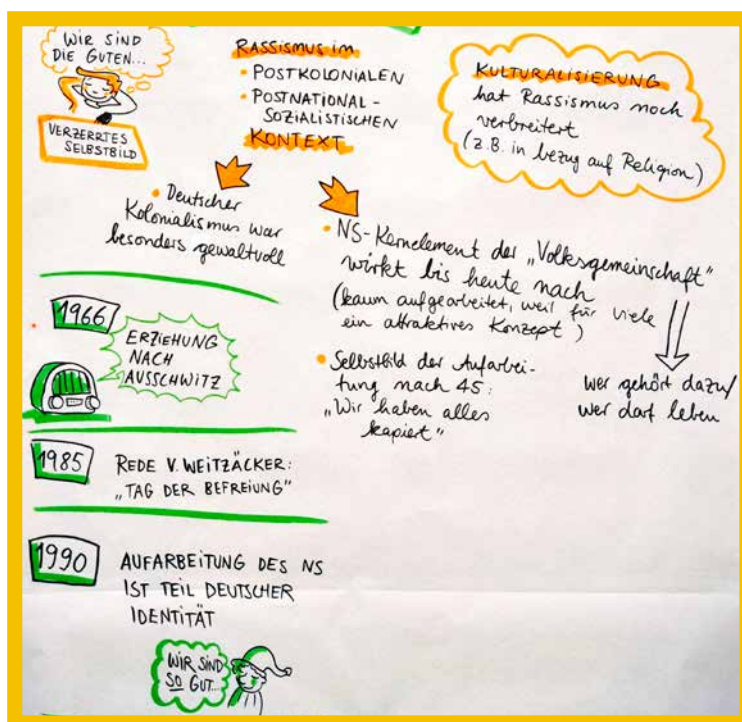 WIR SIND
DIE GUTEN...
VERZERRTES
SELBSTBILD
RASSISMUS IM
• POSTKOLONIALEN
• POSTNATIONAL-
SOZIALISTISCHEN
KONTEXT
KULTURALISIERUNG
hat Rassismus noch
verbreitert
(z.B. in bezug auf Religion)
• Deutscher
Kolonialismus war
besonders gewaltvoll
• NS-Kernelement der „Volksgemeinschaft"
wirkt bis heute nach
(kaum aufgearbeitet, weil für viele
ein attraktives Konzept)
• Selbstbild der Aufarbei-
tung nach 45:
„Wir haben alles
kapiert"
wer gehört dazu/
wer darf leben
1966
ERZIEHUNG
NACH
AUSSCHWITZ
1985
REDE V. WEITZÄCKER:
„TAG DER BEFREIUNG"
1990
AUFARBEITUNG DES NS
IST TEIL DEUTSCHER
IDENTITÄT
WIR SIND
SO GUT...